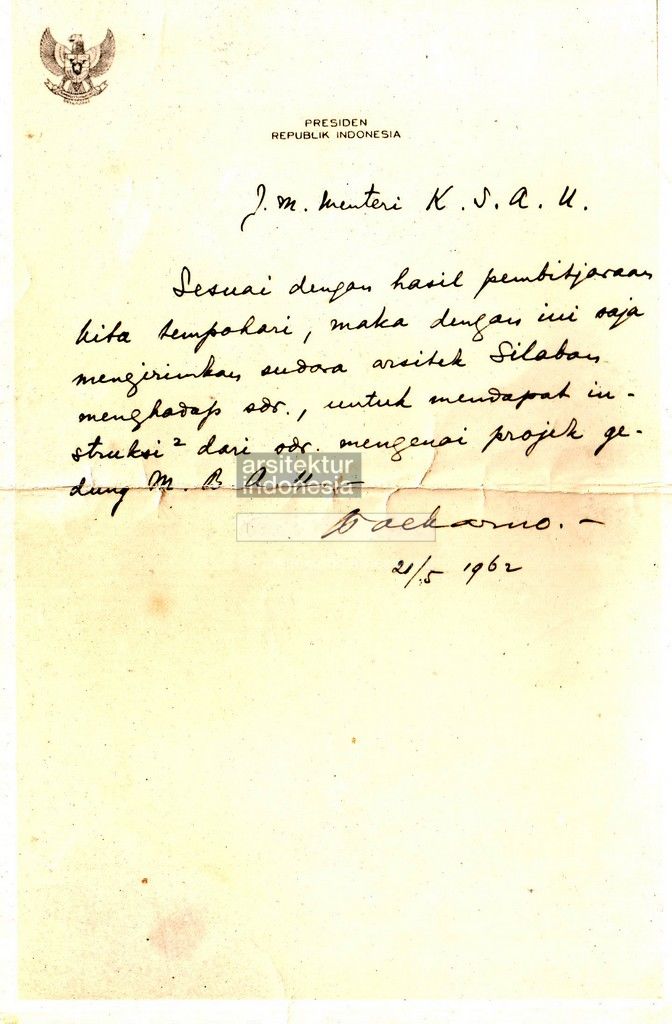 PRESIDEN
REPUBLIK INDONESIA
J. M. Menteri K. S. A. U.
Sesuai dengan hasil pembitjaraan
kita tempohari, maka dengan ini saja
mengirimkan sudara arsitek Silaban
menghadap sdr., untuk mendapat in-
struksi² dari sdr. mengenai projek ge-
dung M. B. A. U. –
arsitektur
indonesia
Soekarno. –
21/5 1962